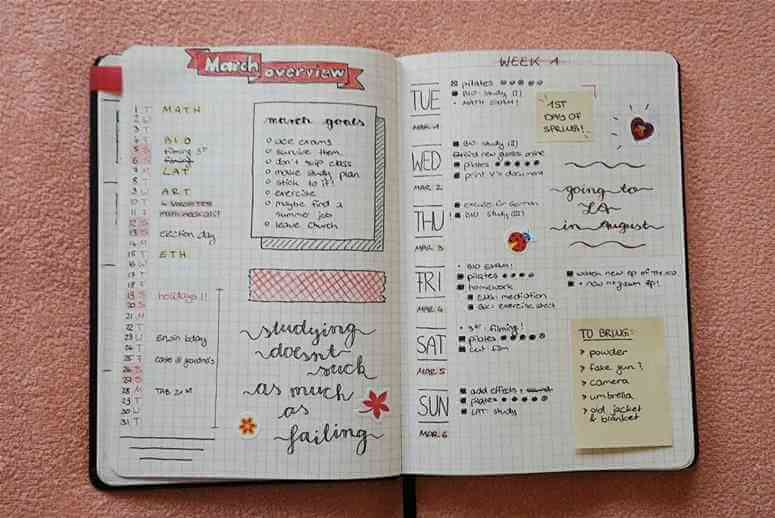 March overview
1 T MATH
2 W
3 T
4 F BIO
5 S filming 3rd
6 S
7 M LAT
8 T
9 W ART
10 T
11 F
12 S
13 S election day
14 M
15 T ETH
16 W
17 T
18 F
19 S holidays !!
20 S
21 M
22 T
23 W Erwin bday
24 T
25 F
26 S
27 S
28 M TAB ZLM
29 T
30 W
31 T
march goals
ace exams
survive them
don't skip class
make study plan
stick to it!
exercise
maybe find a
summer job
leave church
studying
doesnt
suck
as much
as
failing
WEEK 1
TUE
MAR. 1
pilates
BIO study (2)
MATH EXAM!!
1ST
DAY OF
SPRING!
WED
MAR. 2
BIO study (2)
new glasses online
pilates
print V's document
going to
LA
in August
THU
MAR. 3
excuse in German
BIO study (2)
FRI
MAR. 4
BIO EXAM!
pilates
homework
ENG: mediation
exercise sheet
watch new ep of
+ new ep!
SAT
MAR. 5
3rd filming!
pilates
cut film
SUN
MAR. 6
add effects +
pilates
LAT study
TO BRING:
> powder
> fake gun?
> camera
> umbrella
> old jacket
& blanket